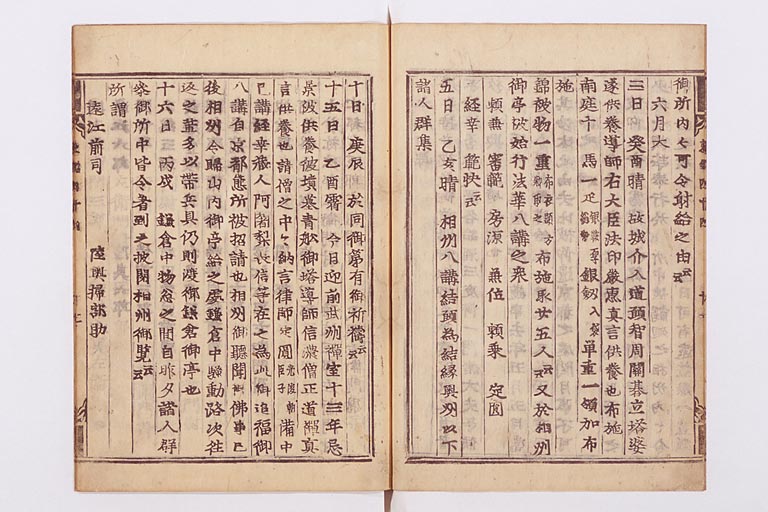 御所内々可令射給之由云云
六月大
三日 癸酉晴 故城介入道願智周闋養立塔婆
遂供養導師右大臣法印厳恵真言供養也布施之
南庭十 馬一疋 銀剱 入 単重一領加布
施
錦被物一重 布施取廿五人云云 又於相州
御亭被始行法華八講之衆
頼兼 審範 房源 兼位 頼乗 定圓
経幸 範快云云
五日 乙亥晴 相州八講結願為結縁奥州以下
諸人群集
十日 庚辰 於同御第有御祈禱云云
十五日 乙酉霽 今日迎前武州禅室十三年忌
景被供養彼墳墓青船御塔導師信濃僧正道禅真
言供養也請僧之中 納言律師定圓 備中
已講経幸蔵人阿闍梨長信等在之為此御追福御
八講自京都態所被招請也相州御聴聞 佛事已
後相州令賜山内御亭給之處鎌倉中騒動路次往
返之輩多以帯兵具仍則渡御鎌倉御亭也
十六日 丙戌 鎌倉中物忩之間自昨夕諸人群
参御所中皆令着到之被覧相州御覧云云
所謂
遠江前司 陸奥掃部助